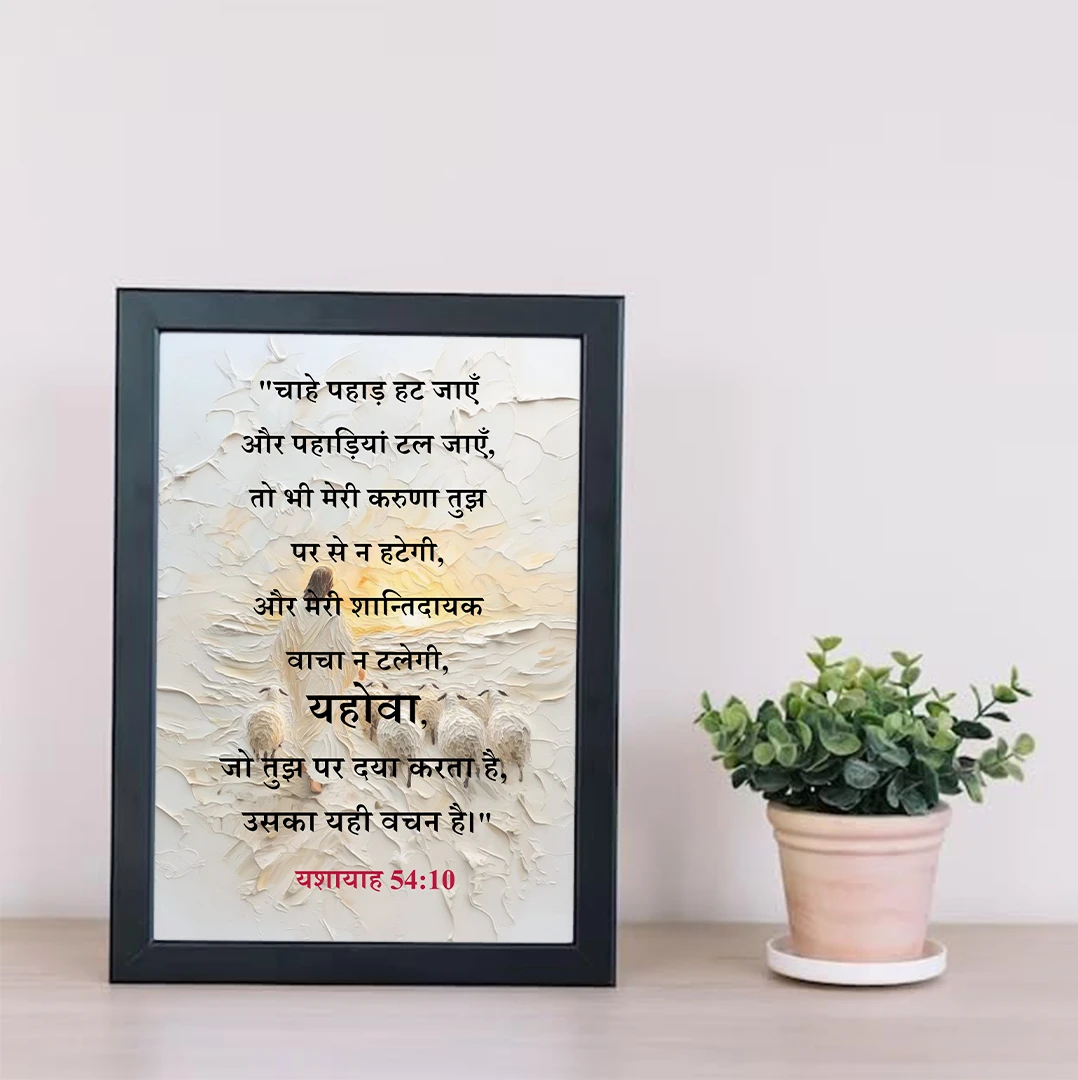 "चाहे पहाड़ हट जाएँ
और पहाड़ियां टल जाएँ,
तो भी मेरी करुणा तुझ
पर से न हटेगी,
और मेरी शान्तिदायक
वाचा न टलेगी,
यहोवा,
जो तुझ पर दया करता है,
उसका यही वचन है।"
यशायाह 54:10